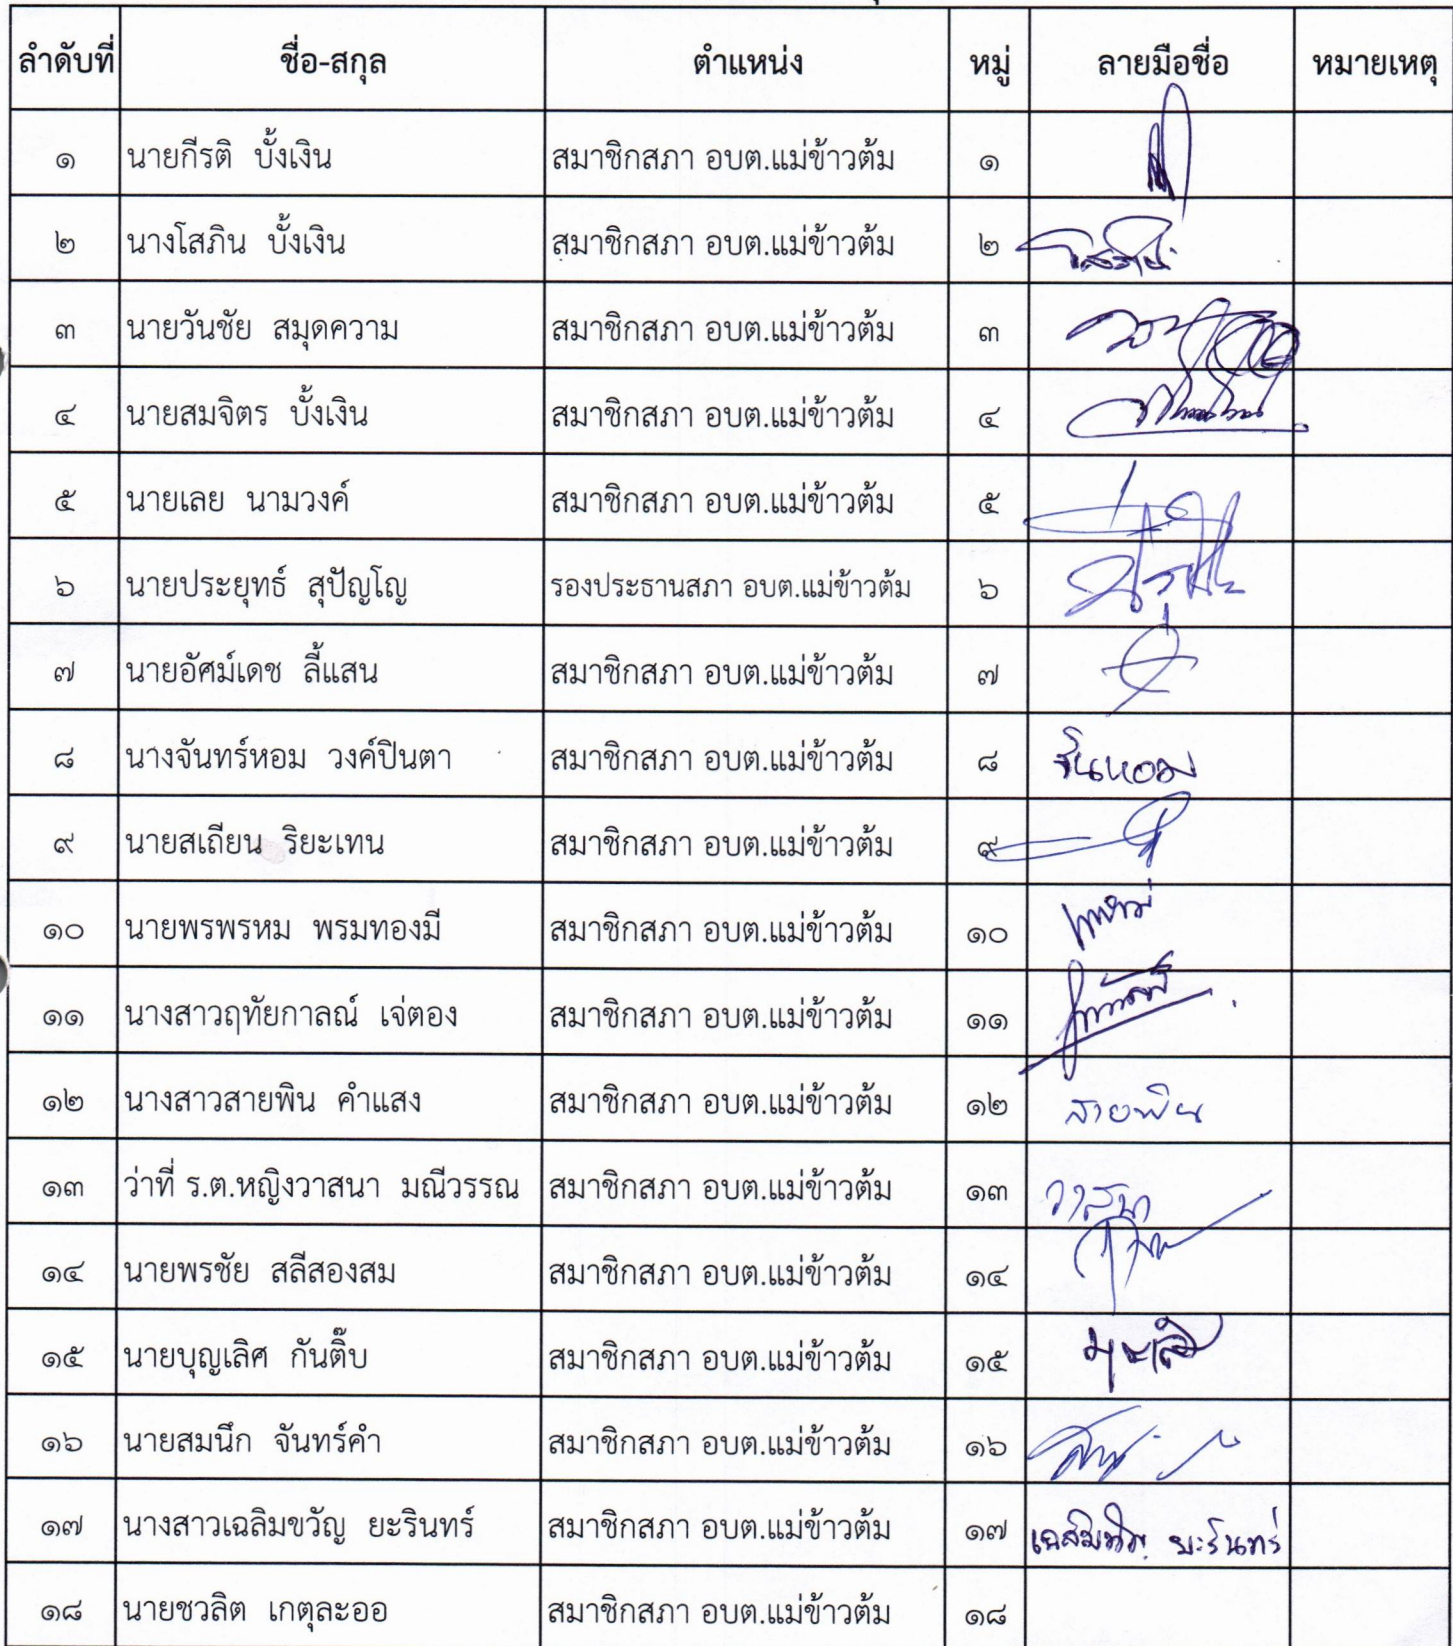 ลำดับที่ ชื่อ-สกุล ตำแหน่ง หมู่ ลายมือชื่อ หมายเหตุ
๑ นายกีรติ บั้งเงิน สมาชิกสภา อบต.แม่ข้าวต้ม ๑
๒ นางโสภิน บั้งเงิน สมาชิกสภา อบต.แม่ข้าวต้ม ๒
๓ นายวันชัย สมุดความ สมาชิกสภา อบต.แม่ข้าวต้ม ๓
๔ นายสมจิตร บั้งเงิน สมาชิกสภา อบต.แม่ข้าวต้ม ๔
๕ นายเลย นามวงค์ สมาชิกสภา อบต.แม่ข้าวต้ม ๕
๖ นายประยุทธ์ สุปัญโญ รองประธานสภา อบต.แม่ข้าวต้ม ๖
๗ นายอัศม์เดช ลี้แสน สมาชิกสภา อบต.แม่ข้าวต้ม ๗
๘ นางจันทร์หอม วงค์ปินตา สมาชิกสภา อบต.แม่ข้าวต้ม ๘ จันหอม
๙ นายสเถียน ริยะเทน สมาชิกสภา อบต.แม่ข้าวต้ม ๙
๑๐ นายพรพรหม พรมทองมี สมาชิกสภา อบต.แม่ข้าวต้ม ๑๐
๑๑ นางสาวฤทัยกาลณ์ เจ่ตอง สมาชิกสภา อบต.แม่ข้าวต้ม ๑๑
๑๒ นางสาวสายพิน คำแสง สมาชิกสภา อบต.แม่ข้าวต้ม ๑๒ สายพิน
๑๓ ว่าที่ ร.ต.หญิงวาสนา มณีวรรณ สมาชิกสภา อบต.แม่ข้าวต้ม ๑๓ วาสนา
๑๔ นายพรชัย สลีสองสม สมาชิกสภา อบต.แม่ข้าวต้ม ๑๔
๑๕ นายบุญเลิศ กันติ๊บ สมาชิกสภา อบต.แม่ข้าวต้ม ๑๕
๑๖ นายสมนึก จันทร์คำ สมาชิกสภา อบต.แม่ข้าวต้ม ๑๖
๑๗ นางสาวเฉลิมขวัญ ยะรินทร์ สมาชิกสภา อบต.แม่ข้าวต้ม ๑๗ เฉลิมขวัญ ยะรินทร์
๑๘ นายชวลิต เกตุละออ สมาชิกสภา อบต.แม่ข้าวต้ม ๑๘